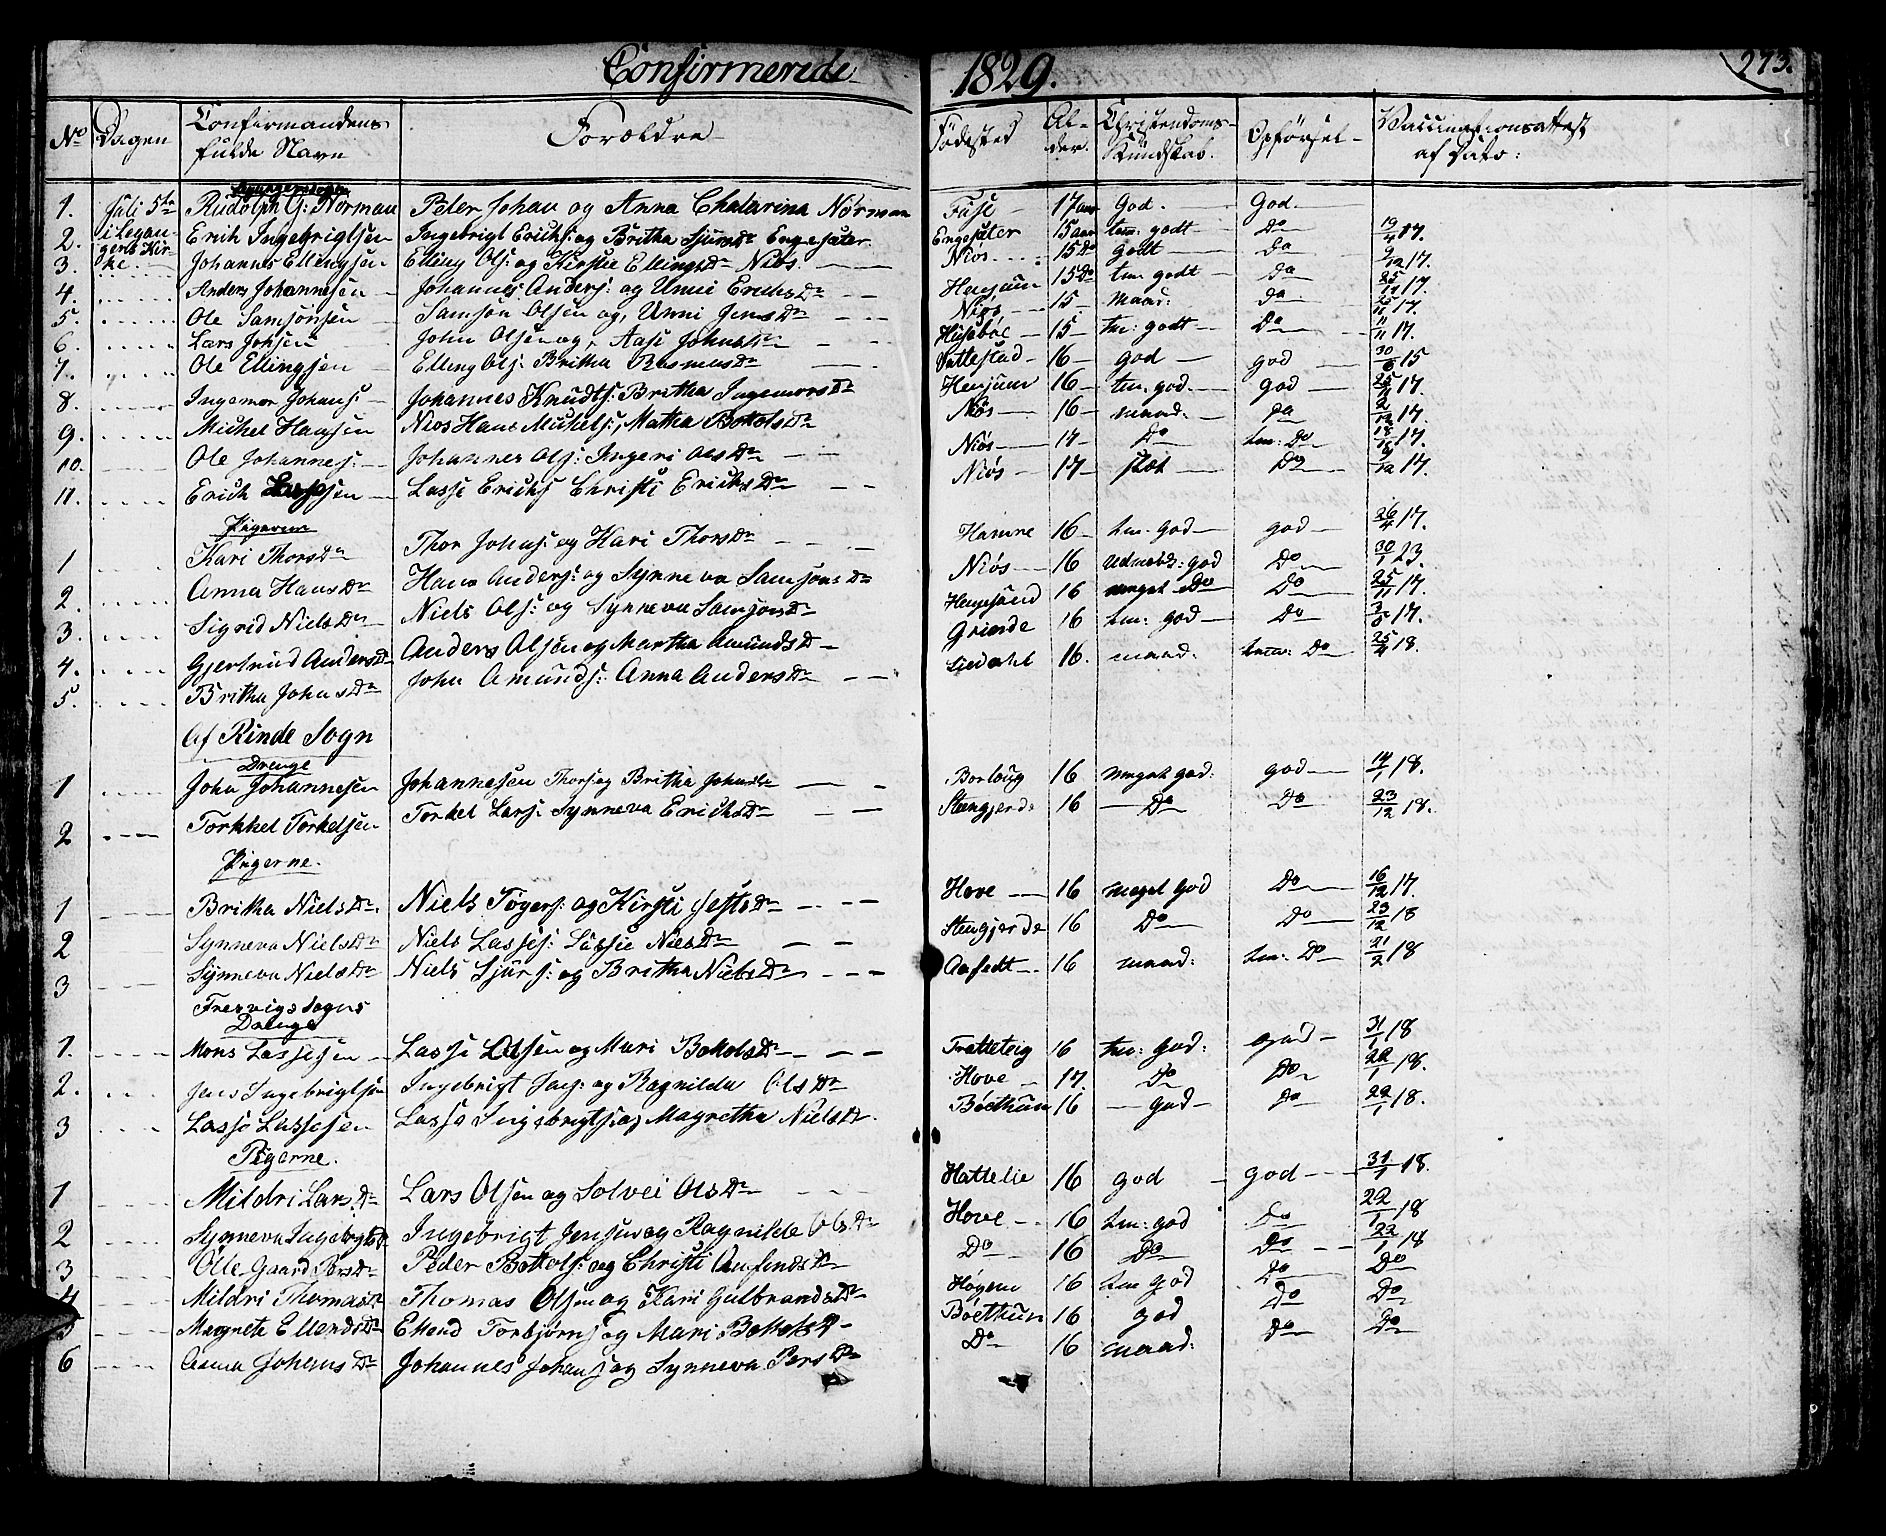 Confirmerede 1829. 273.
No Dagen Confirmandens fulde Navn Forældre Födested Alder. Christendoms-Kundskab. Opförsel Vaccinationsattest af Dato:
1. Juli 5te Rudolph G: Norman Peter Johan og Anna Chatarina Nörman Fuse 17 aar God. God.
2. i Leganger Kirke Erich Ingebrigtsen Ingebrigt Erichs: og Britha Sjurs Dr Engesæter Engesæter 15 aar tem: godt Do 19/4 17.
3. Johannes Ellingsen Elling Ols: og Kirstie Ellings Dr Niøs Niøs 15 Do Godt Do 2/12 17.
4. Anders Johannesen Johannes Anders: og Unni Erichs Dr Henjum 15 Do tm: godt Do 25/11 17.
5. Ole Samsonsen Samson Olsen og Unni Jens Dr Niøs 15 maad: Do 25/11 17.
6. Lars Johsen John Olsen og Aase Johns Dr Husebøe 15 tm: godt Do 11/11 17.
7. Ole Ellingsen Elling Ols: Britha Rasmus Dr 16 god god 30/6 15
8. Ingemor Johans: Johannes Knudts: Britha Ingemors Dr Henjum 16 tm: god god 25/11 17.
9. Michel Hansen Niøs Hans Michels: Martha Bottols Dr Niøs 16 maad: Do 2/12 17.
10. Ole Johannes: Johannes Ols: Ingeri Ols Dr Niøs 17 Do tm: Do 18/11 17.
11. Erich Lassesen Lasse Erichs Christi Erichs Dr Niøs 17 slet Do 9/12 17.
Pigerne
1 Kari Thors Dr Thor Johns: og Kari Thors Dr Hamre 16 tm: god god 26/4 17.
2. Anna Hans Dr Hans Anders: og Synneva Samsons Dr Niøs 16 udmerk: god Do 30/1 23.
3. Sigrid Niels Dr Niels Ols: og Synneva Samsons Dr 16 meget Do Do 25/11 17.
4. Gjertrud Anders Dr Anders Olsen og Martha Amunds D Grinde 16 tm: god Do 3/6 17.
5. Britha Johns Dr John Amunds: Anna Anders Dr 16. maad. tem: Do 25/4 18.
Af Rinde Sogn
Drenge
1 John Johannesen Johannesen Thors og Britha Johns Dr Borlaug 16 meget god: god 14/1 18.
2 Torkkel Torkelsen Torkel Lars: Synneva Erichs Dr Steengjerde 16 Do Do 23/12 18.
Pigerne.
1 Britha Niels Dr. Niels Töger: og Kirsti Dr Hove 16 meget god Do 16/12 17.
2 Synneva Niels Dr Niels Lasses: Lussie Niels Dr Stengjerde 16 Do Do 23/12 18
3 Synneva Niels Dr Niels Sjurs: og Britha Niels Dr Aafedt 16 maad: tm: Do 21/2 18
Fresvigs Sogns
Drenge
1. Mons Lassesen Lasse Olsen og Mari Bottols Dr Tratteteig 16 tm: god: god 31/1 18
2. Jens Ingebrigtsen Ingebrigt Jens: og Ragnilda Ols Dr Hove 17. Do Do 22/1 18.
3 Lasse Lassesen Lasse Ingebrigts: og Magretha Niels Dr. Böethun 16 god Do 22/1 18.
Pigerne.
1 Mildri Lars Dr Lars Olsen og Solvei Ols Dr Hattelie 16 god god 31/1 18.
2 Synneva Ingebrgts D Ingebrigt Jensen og Ragnilde Ols Dr Hove 16 tm: god Do 22/1 18
3 Gaard Pers Dr Peder Bottols: og Christi Dr Do 16 Do Do 22/1 18
4 Mildri Thomas Dr Thomas Olsen og Kari Gulbrands Dr 16 tm god Do Do
5 Magreth Ellends Dr Ellend Torbjörns og Mari Bottols D Böethun 16 god Do Do
6 Anna Johans Dr Johannes Johans og Synneva Pers Dr Do 16 maad: Do Do